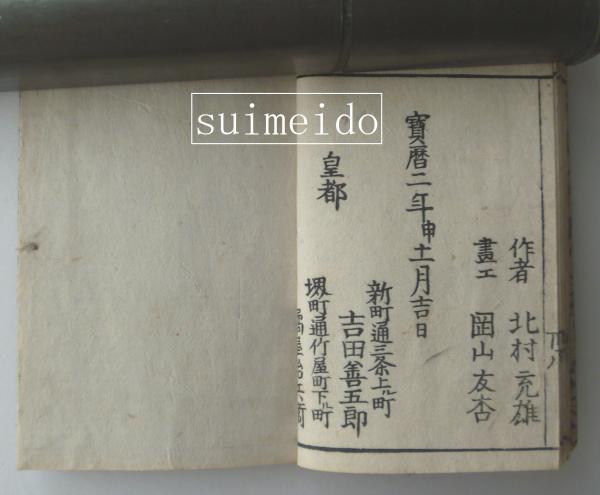 suimeido
作者 北村充雄
畫工 岡山友杏
寶暦二年申十一月吉日
皇都
新町通三条上ル町
吉田善五郎
堺町通竹屋町下ル町